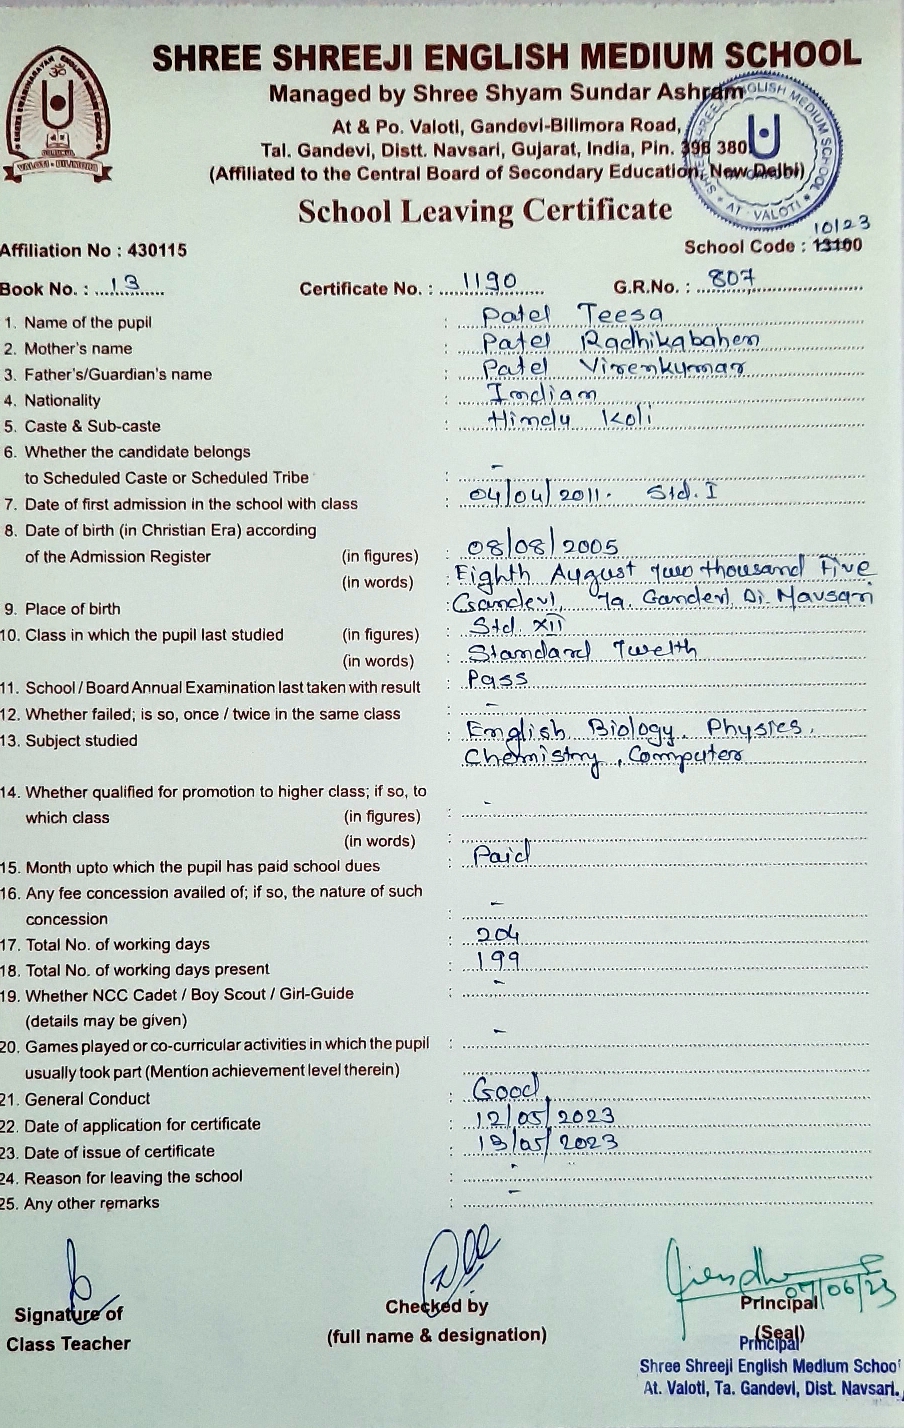 SHREE SHREEJI ENGLISH MEDIUM SCHOOL
Managed by Shree Shyam Sundar Ashram
At & Po. Valoti, Gandevi-Bilimora Road,
Tal. Gandevi, Distt. Navsari, Gujarat, India, Pin. 396 380
(Affiliated to the Central Board of Secondary Education, New Delhi)
VALOTI - BILIMORA
SHREE SHREEJI ENGLISH MEDIUM SCHOOL
AT - VALOTI
School Leaving Certificate
10123
Affiliation No : 430115 School Code : 13100
Book No. : 13 Certificate No. : 1190 G.R.No. : 807
1. Name of the pupil : Patel Teesa
2. Mother's name : Patel Radhikabahen
3. Father's/Guardian's name : Patel Virenkumar
4. Nationality : Indian
5. Caste & Sub-caste : Hindu Koli
6. Whether the candidate belongs
to Scheduled Caste or Scheduled Tribe : -
7. Date of first admission in the school with class : 04/04/2011. Std. I
8. Date of birth (in Christian Era) according
of the Admission Register (in figures) : 08/08/2005
(in words) : Eighth August Two thousand Five
9. Place of birth : Gandevi, Ta. Gandevi, Di. Navsari
10. Class in which the pupil last studied (in figures) : Std XII
(in words) : Standard Twelth
11. School / Board Annual Examination last taken with result : Pass
12. Whether failed; is so, once / twice in the same class : -
13. Subject studied : English Biology, Physics,
Chemistry, Computer
14. Whether qualified for promotion to higher class; if so, to
which class (in figures) : -
(in words) :
15. Month upto which the pupil has paid school dues : Paid
16. Any fee concession availed of; if so, the nature of such
concession : -
17. Total No. of working days : 204
18. Total No. of working days present : 199
19. Whether NCC Cadet / Boy Scout / Girl-Guide : -
(details may be given)
20. Games played or co-curricular activities in which the pupil : -
usually took part (Mention achievement level therein)
21. General Conduct : Good
22. Date of application for certificate : 12/05/2023
23. Date of issue of certificate : 13/05/2023
24. Reason for leaving the school : -
25. Any other remarks : -
07/06/23
Signature of Checked by Principal
Class Teacher (full name & designation) (Seal)
Principal
Shree Shreeji English Medium School
At. Valoti, Ta. Gandevi, Dist. Navsari.